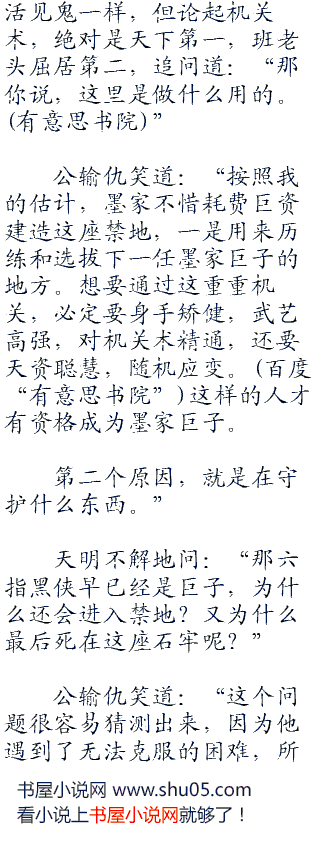 活见鬼一样，但论起机关
术，绝对是天下第一，班老
头屈居第二，追问道：“那
你说，这里是做什么用的。
(有意思书院)”
公输仇笑道：“按照我
的估计，墨家不惜耗费巨资
建造这座禁地，一是用来历
练和选拔下一任墨家巨子的
地方。想要通过这重重机
关，必定要身手矫健，武艺
高强，对机关术精通，还要
天资聪慧，随机应变。(百度
“有意思书院”)这样的人才
有资格成为墨家巨子。
第二个原因，就是在守
护什么东西。”
天明不解地问：“那六
指黑侠早已经是巨子，为什
么还会进入禁地？又为什么
最后死在这座石牢呢？”
公输仇笑道：“这个问
题很容易猜测出来，因为他
遇到了无法克服的困难，所
书屋小说网 www.shu05.com
看小说上书屋小说网就够了！